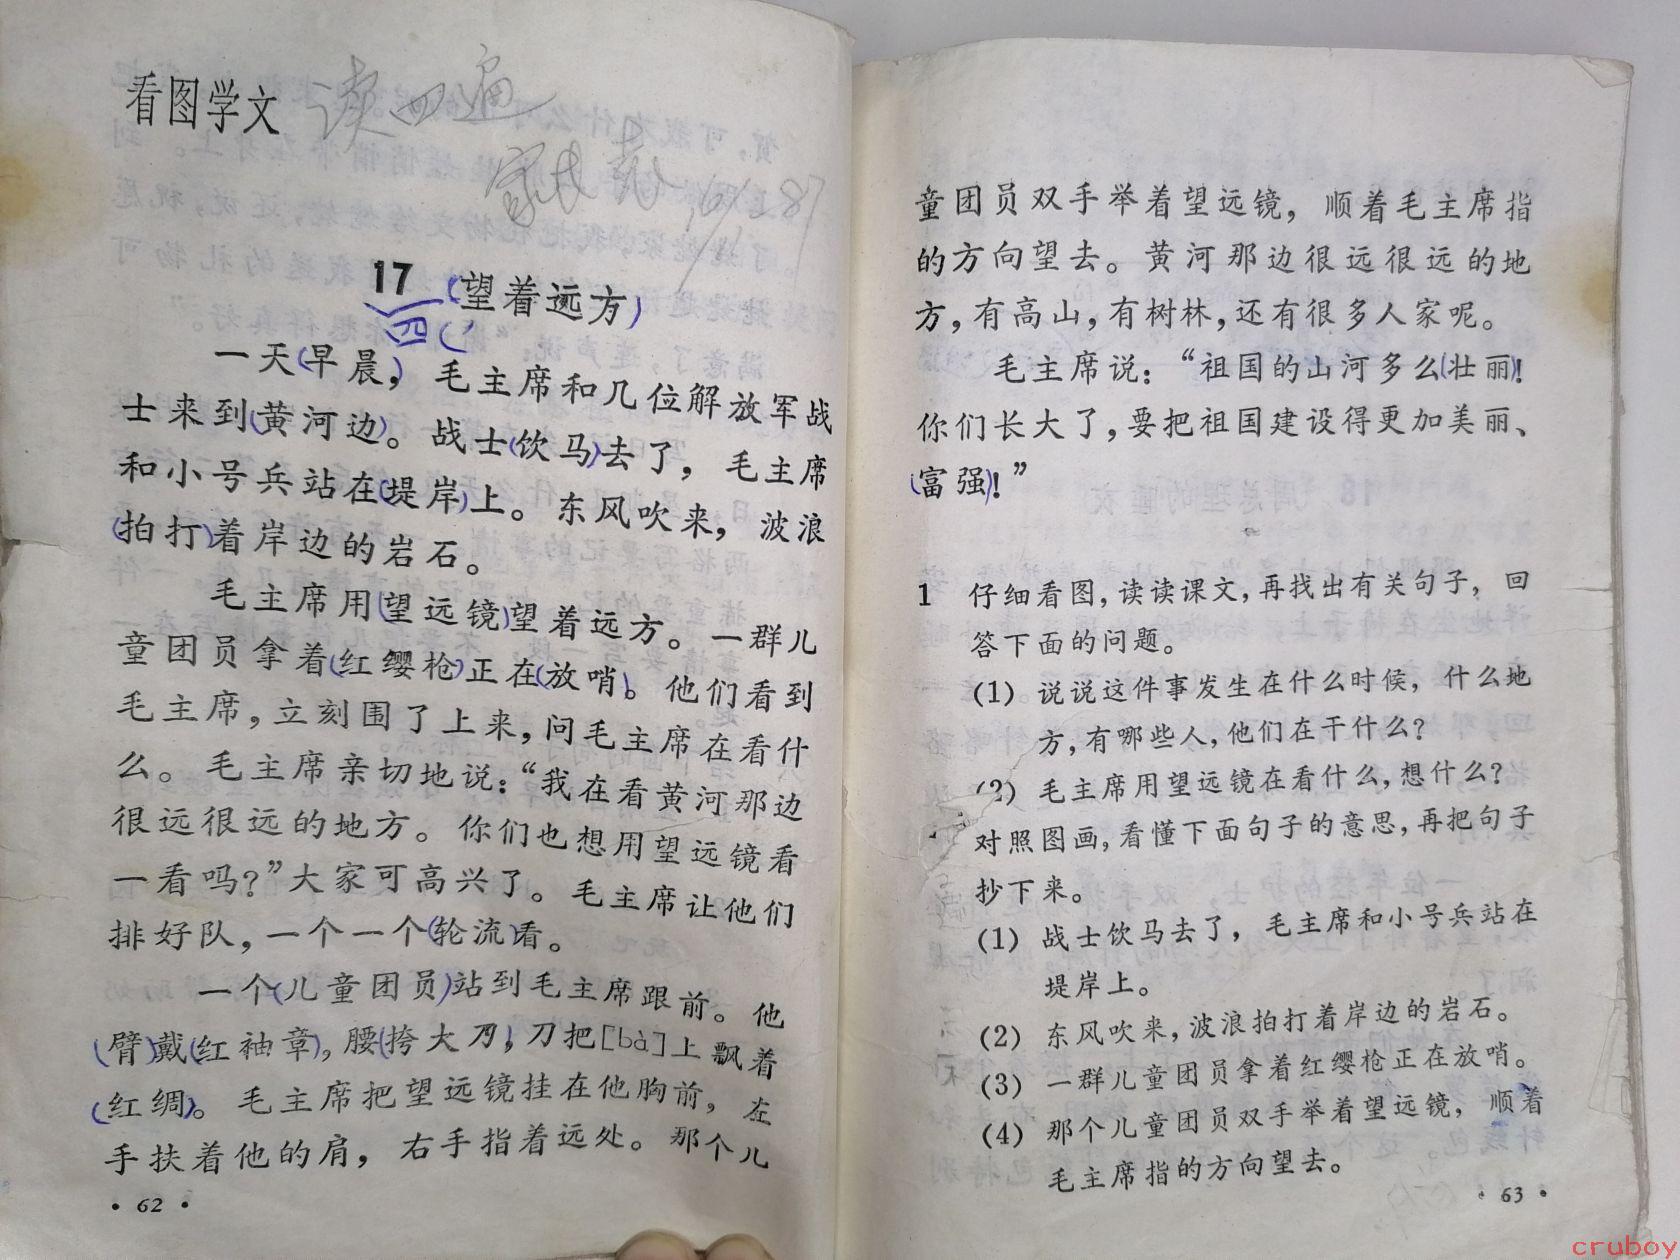 看图学文 读四遍
17 望着远方
四
一天早晨，毛主席和几位解放军战
士来到黄河边。战士饮马去了，毛主席
和小号兵站在堤岸上。东风吹来，波浪
拍打着岸边的岩石。
毛主席用望远镜望着远方。一群儿
童团员拿着红缨枪正在放哨。他们看到
毛主席，立刻围了上来，问毛主席在看什
么。毛主席亲切地说：“我在看黄河那边
很远很远的地方。你们也想用望远镜看
一看吗？”大家可高兴了。毛主席让他们
排好队，一个一个轮流看。
一个儿童团员站到毛主席跟前。他
臂戴红袖章，腰挎大刀，刀把[bà]上飘着
红绸。毛主席把望远镜挂在他胸前，左
手扶着他的肩，右手指着远处。那个儿
• 62 •
童团员双手举着望远镜，顺着毛主席指
的方向望去。黄河那边很远很远的地
方，有高山，有树林，还有很多人家呢。
毛主席说：“祖国的山河多么壮丽！
你们长大了，要把祖国建设得更加美丽、
富强！”
1 仔细看图，读读课文，再找出有关句子，回
答下面的问题。
(1) 说说这件事发生在什么时候，什么地
方，有哪些人，他们在干什么？
(2) 毛主席用望远镜在看什么，想什么？
对照图画，看懂下面句子的意思，再把句子
抄下来。
(1) 战士饮马去了，毛主席和小号兵站在
堤岸上。
(2) 东风吹来，波浪拍打着岸边的岩石。
(3) 一群儿童团员拿着红缨枪正在放哨。
(4) 那个儿童团员双手举着望远镜，顺着
毛主席指的方向望去。
• 63 •
cruboy